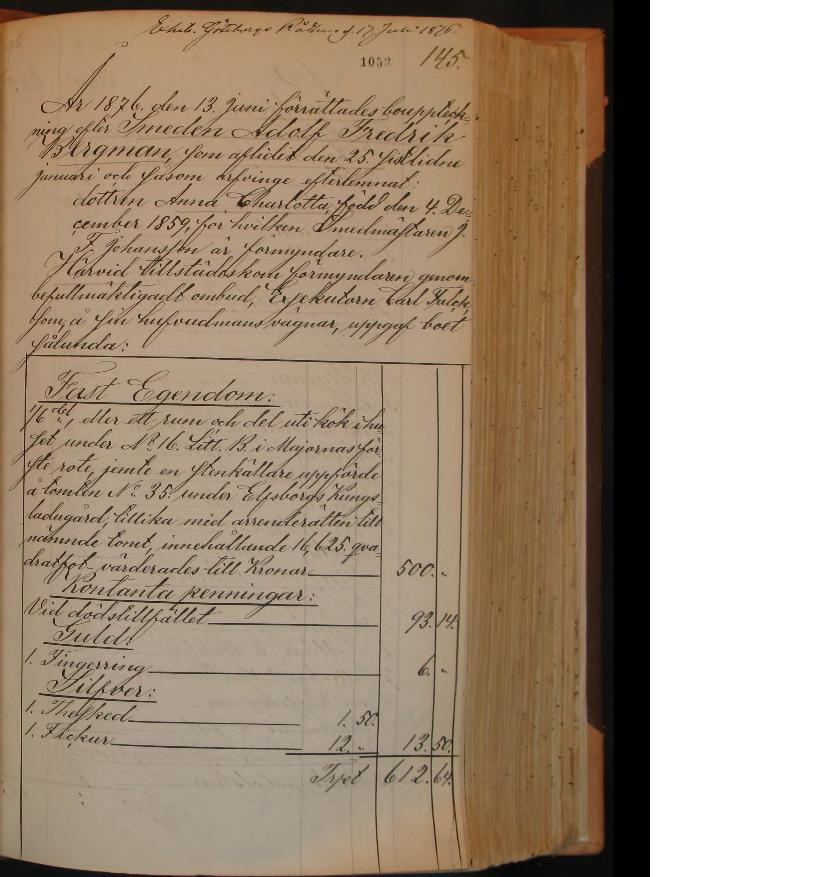 Exhib. Göteborgs Rådhus d. 17 Juli 1876.
1053 145.
År 1876. den 13. Juni förrättades bouppteck-
ning efter Smeden Adolf Fredrik
Bergman, som aflidit den 25. sistlidne
januari och såsom arfvinge efterlemnat:
dottren Anna Charlotta, född den 4. De-
cember 1859, för hvilken Smedmästaren J.
F. Johansson är förmyndare.
Härvid tillstädeskom förmyndaren genom
befullmäktigadt ombud, Exsekutorn Carl Falck,
som, å sin hufvudmans vägnar, uppgaf boet
sålunda:
Fast Egendom:
1/6 del, eller ett rum och del uti kök i hu-
set under No. 16. Litt. B. i Majornas för-
ste rote, jemte en stenkällare uppförde
å tomten No. 35. under Elfsborgs Kungs-
ladugård, tillika med arrenderätten till
nämnde tomt, innehållande 16,625. qva-
dratfot värderades till Kronor 500. "
Kontanta penningar:
Vid dödstillfället 93. 14.
Guld:
1. Fingerring 6. "
Silfver:
1. Thesked 1. 50.
1. Fickur 12. " 13. 50.
Trpt 612. 64.